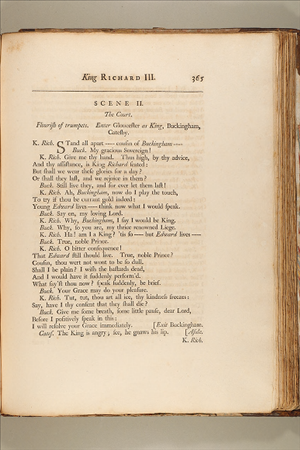 King RICHARD III. 365
SCENE II.
The Court.
Flourish of trumpets. Enter Gloucester as King, Buckingham,
Catesby.
K. Rich. STand all apart — cousin of Buckingham —
Buck. My gracious Sovereign!
K. Rich. Give me thy hand. Thus high, by thy advice,
And thy assistance, is King Richard seated:
But shall we wear these glories for a day?
Or shall they last, and we rejoice in them?
Buck. Still live they, and for ever let them last!
K. Rich. Ah, Buckingham, now do I play the touch,
To try if thou be currant gold indeed:
Young Edward lives — think now what I would speak.
Buck. Say on, my loving Lord.
K. Rich. Why, Buckingham, I say I would be King.
Buck. Why, so you are, my thrice renowned Liege.
K. Rich. Ha! am I a King? 'tis so — but Edward lives —
Buck. True, noble Prince.
K. Rich. O bitter consequence!
That Edward still should live. True, noble Prince?
Cousin, thou wert not wont to be so dull.
Shall I be plain? I wish the bastards dead,
And I would have it suddenly perform'd.
What say'st thou now? speak suddenly, be brief.
Buck. Your Grace may do your pleasure.
K. Rich. Tut, tut, thou art all ice, thy kindness freezes:
Say, have I thy consent that they shall die?
Buck. Give me some breath, some little pause, dear Lord,
Before I positively speak in this:
I will resolve your Grace immediately. [Exit Buckingham.
Catef. The King is angry; see, he gnaws his lip. [Aside.
K. Rich.